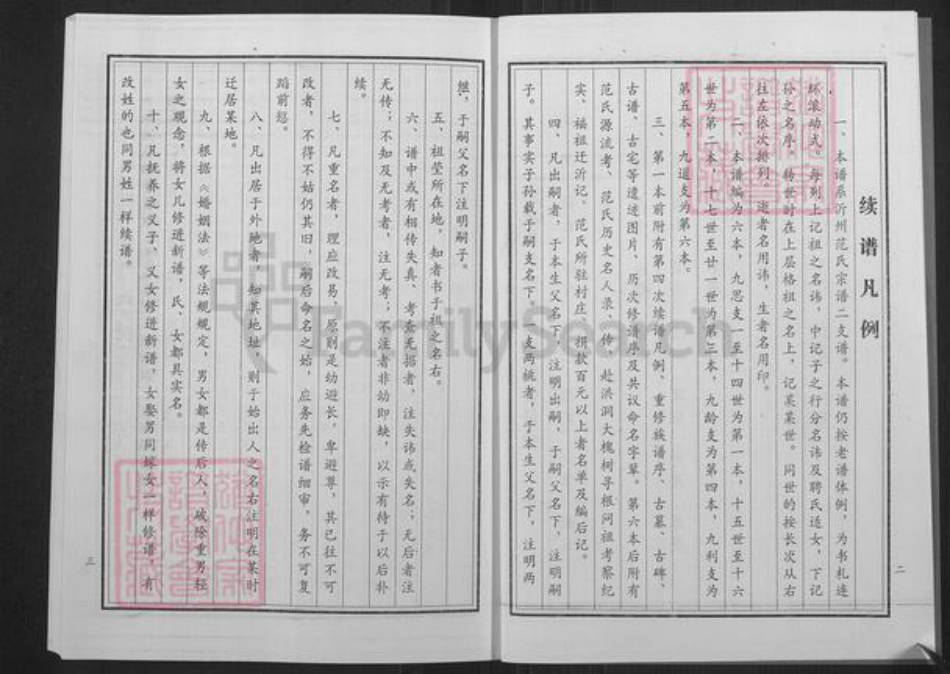 续谱凡例
一、本谱系沂州范氏宗谱二支谱。本谱仍按老谱体例，为书札连
环滚动式。每列上记祖之名讳，中记子之行分名讳及聘氏适女，下记
孙之名序，转世时在上层格祖之名上，记某某世。同世的按长次从右
往左依次排列。逝者名用讳，生者名用印。
二、本谱编为六本，九思支一至十四世为第一本，十五世至十六
世为第二本，十七世至廿一世为第三本，九龄支为第四本，九利支为
第五本，九道支为第六本。
三、第一本前附有第四次续谱凡例、重修族谱序、古墓、古碑、
古谱、古宅等遗迹图片、历次修谱序及共议命名字辈。第六本后附有
范氏源流考、范氏历史名人录、传、赴洪洞大槐树寻根问祖考察纪
实、福祖迁沂记。范氏所驻村庄、捐款百元以上者名单及编后记。
四、凡出嗣者，于本生父名下，注明出嗣，于嗣父名下，注明嗣
子。其事实子孙载于嗣支名下，一支两桃者，于本生父名下，注明两
二
继，于嗣父名下注明嗣子。
五、祖茔所在地，知者书于祖之名右。
六、谱中或有相传失真、考查无据者，注失讳或失名；无后者注
无传；不知及无考者，注无考；不注者非幼即缺，以示有待于以后补
续。
七、凡重名者，理应改易，原则是幼避长，卑避尊，其已往不可
改者，不得不姑仍其旧，嗣后命名之始，应务先检谱细审，务不可复
蹈前愆。
八、凡出居于外地者，知其地址，则于始出人之名右注明在某时
迁居某地。
九、根据《婚姻法》等法规规定，男女都是传后人，破除重男轻
女之观念，将女儿修进新谱，氏、女都具实名。
十、凡抚养之义子、义女修进新谱，女娶男同嫁女一样修谱，有
改姓的也同男姓一样续谱。
三
FamilySearch